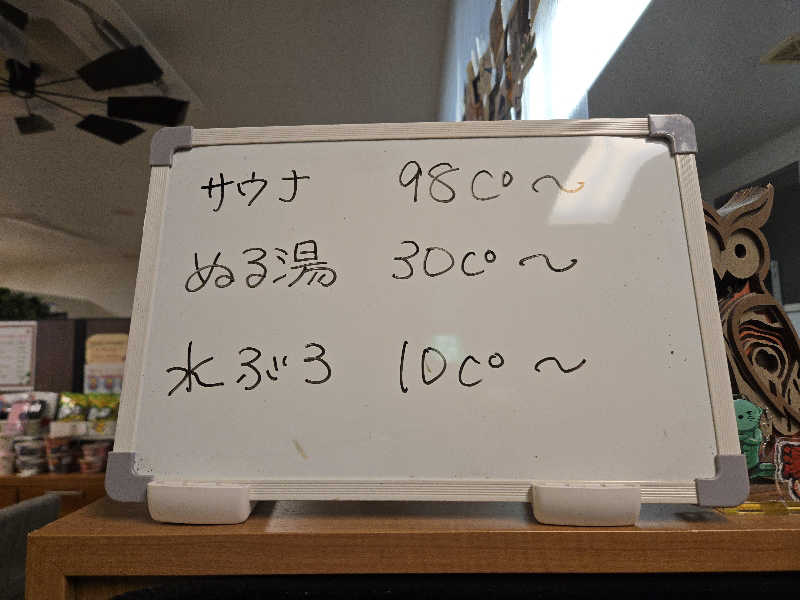 サウナ 98C° ～
ぬる湯 30C° ～
水ぶろ 10C° ～